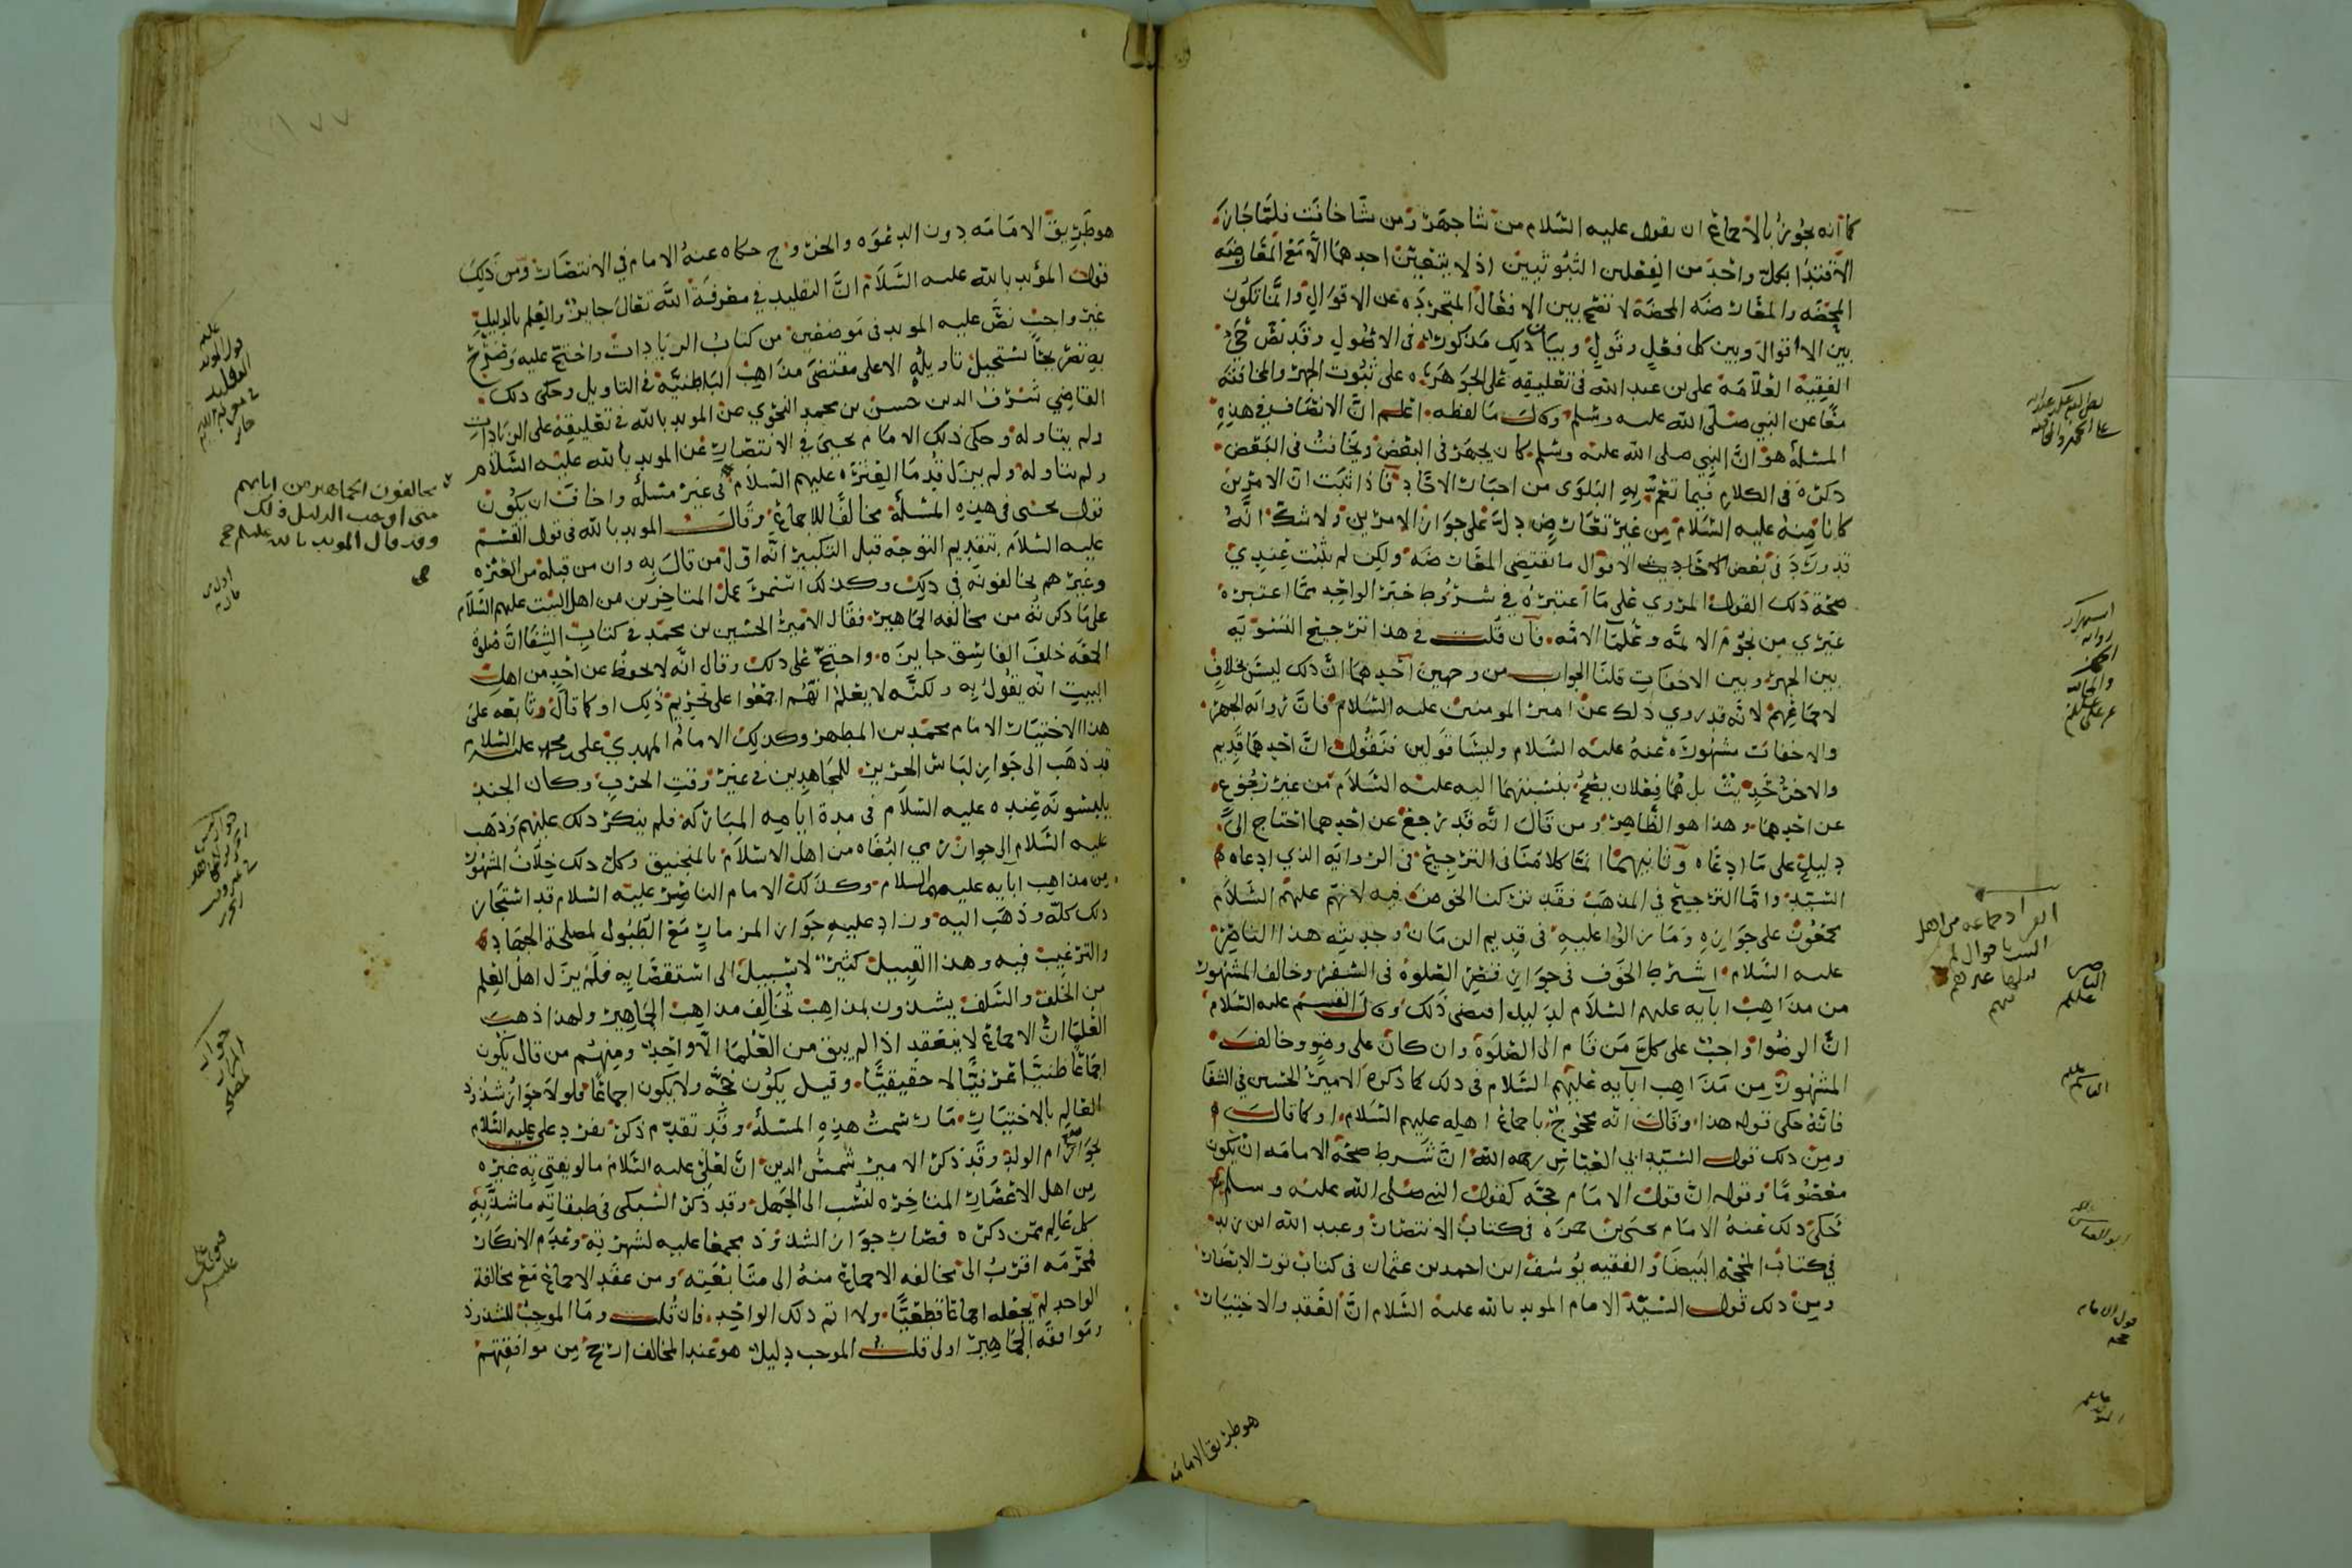 كما انه يجوز بالاجماع ان يقول عليه السلام من شا جهر ومن شا خافت فلما جاز
الاقتدا بكل واحد من الفعلين الثبوتيين اذ لا يتعين احدهما الا مع المعارضه
المحضه والمعارضه المحضه لا تصح بين الافعال المتجرده عن الاقوال وانما تكون
بين الاقوال وبين كل فعل وقول وبيان ذلك مذكور في الاصول وقد نص
الفقيه العلامه علي بن عبد الله في تعليقه على الجوهره على ثبوت الجهر والمخافته
معا عن النبي صلى الله عليه وسلم وقال ما لفظه اعلم ان الانصاف في هذه
المسئلة هو ان النبي صلى الله عليه وسلم كان يجهر في البعض ويخافت في البعض
ذكره في الكلام فيما تعم به البلوى من اخبار الاحاد فاذا ثبت ان الامرين
كانا منه عليه السلام من غير تعارض دل على جواز الامرين ولا شك انه
قد ورد في بعض الاحاديث الاقوال ما يقتضي المعارضه ولكن لم يثبت عندي
صحة ذلك القول المروي على ما اعتبره في شروط خبر الواحد مما اعتبره
غيري من نجوم الائمه وعلما الامه فان قلت في هذا ترجيح التسويه
بين الجهر وبين الاخفات قلنا الجواب من وجهين احدهما ان ذلك ليس بخلاف
لاجماعهم لانه قد روي ذلك عن امير المومنين عليه السلام فان رواية الجهر
والاخفات مشهوره عنه عليه السلام وليسا قولين فنقول ان احدهما قديم
والاخر حديث بل هما فعلان يصح نسبتهما اليه عليه السلام من غير رجوع
عن احدهما وهذا هو الظاهر ومن قال انه قد رجع عن احدهما احتاج الى
دليل على ما ادعاه وثانيهما انما كلامنا في الترجيح في الروايه الذي ادعاه
السيد واما الترجيح في المذهب فقد تركنا الخوض فيه لانهم عليهم السلام
مجمعون على جوازه وما زالوا عليه في قديم الزمان وحديثه هذا الناصر
عليه السلام اشترط الخوف في جواز قصر الصلوه في السفر وخالف المشهور
من مذاهب آبايه عليهم السلام لدليل اقتضى ذلك وقال القسم عليه السلام
ان الوضوا واجب على كل من قام الى الصلوة وان كان على وضو وخالف
المشهور من مذاهب آبايه عليهم السلام في ذلك كما ذكره الامير الحسين في الشفا
فانه حكى قوله هذا وقال انه محجوج باجماع اهله عليهم السلام او كما قال
ومن ذلك قول السيد ابي العباس رحمه الله ان شرط صحة الامامه ان يكون
معصوما وقوله ان قول الامام حجه كقول النبي صلى الله عليه وسلم
حكى ذلك عنه الامام يحيى بن حمزه في كتاب الانتصار وعبد الله ابن زيد
في كتاب المحجه البيضا والفقيه يوسف ابن احمد بن عثمان في كتاب نور الابصار
ومن ذلك قول السيد الامام المويد بالله عليه السلام ان العقد والاختيار
هو طريق الامامه
الناصر عليلم
القاسم عليلم
ابو العباس
قول الامام حجه
هو طريق الامامه دون الدعوه والخروج حكاه عنه الامام في الانتصار ومن ذلك
قول المؤيد بالله عليه السلام ان التقليد في معرفة الله تعالى جايز والعلم بالدليل
غير واجب نص عليه المويد في موضعين من كتاب الزيادات واحتج عليه وصرح
به تصريحا يستحيل تاويله الا على مقتضى مذاهب الباطنيه في التاويل وحكى ذلك
القاضي شرف الدين حسن بن محمد النحوي عن المويد بالله في تعليقه على الزيادات
ولم يتاوله وحكى ذلك الامام يحيى في الانتصار عن المويد بالله عليه السلام
ولم يتاوله ولم يزل قدما العتره عليهم السلام في غير مسئله واخاف ان يكون
قول يحيى في هذه المسئلة مخالفا للاجماع وقال المويد بالله في قول القسم
عليه السلام بتقديم التوجه قبل التكبير انه اول من قال به وان من قبله من العتره
وغيرهم يخالفونه في ذلك وكذلك استمر عمل المتاخرين من اهل البيت عليهم السلام
على ما ذكرته من مخالفه الجماهير فقال الامير الحسين بن محمد في كتاب الشفا ان صلوة
الجمعه خلف الفاسق جايزه واحتج على ذلك وقال انه لا يحفظ عن احد من اهل
البيت انه يقول به ولكنه لا يعلم انهم اجمعوا على تحريم ذلك او كما قال وتابعه على
هذا الاختيار الامام محمد بن المطهر وكذلك الامام المهدي علي بن محمد عليه السلام
قد ذهب الى جواز لباس الحرير للمجاهدين في غير وقت الحرب وكان الجند
يلبسونه عنده عليه السلام في مدة ايامه المباركه فلم ينكر ذلك عليهم وذهب
عليه السلام الى جواز رمي البغاه من اهل الاسلام بالمنجنيق وكل ذلك خلاف المشهور
من مذاهب ابايه عليهم السلام وكذلك الامام الناصر عليه السلام قد استجاز
ذلك كله وذهب اليه وزاد عليه جواز المزمار مع الطبول لمصلحة الجهاد
والترغيب فيه وهذا القبيل كثير لا سبيل الى استقصايه فلم يزل اهل العلم
من الخلف والسلف يشذون بمذاهب تخالف مذاهب الجماهير ولهذا ذهب
العلما ان الاجماع لا ينعقد اذا لم يبق من العلما الا واحد ومنهم من قال يكون
اجماعا ظنيا عرفيا لا حقيقيا وقيل يكون حجه ولا يكون اجماعا فلولا جواز شذوذ
العالم بالاختيار ما رسمت هذه المسئلة وقد تقدم ذكر تفرد علي عليه السلام
بجواز ام الولد وقد ذكر الامير شمس الدين ان لعلي عليه السلام ما لو يفتي به غيره
من اهل الاعصار المتاخره لنسب الى الجهل وقد ذكر السبكي في طبقاته ما شذ به
كل عالم ممن ذكره فصار جواز الشذوذ مجمعا عليه لشهرته وعدم الانكار
فمحرمه اقرب الى مخالفه الاجماع منه الى متابعته ومن عقد الاجماع مع مخالفة
الواحد لم يجعله اجماعا قطعيا ولا اثم ذلك الواحد فان قلت وما الموجب للشذوذ
وموافقه الجماهير اولى قلت الموجب دليل هو عند المخالف ارجح من موافقتهم
يخالفون الجماهير من ابايهم
متى اوجب الدليل ذلك
وقد قال المويد بالله عليلم
صح